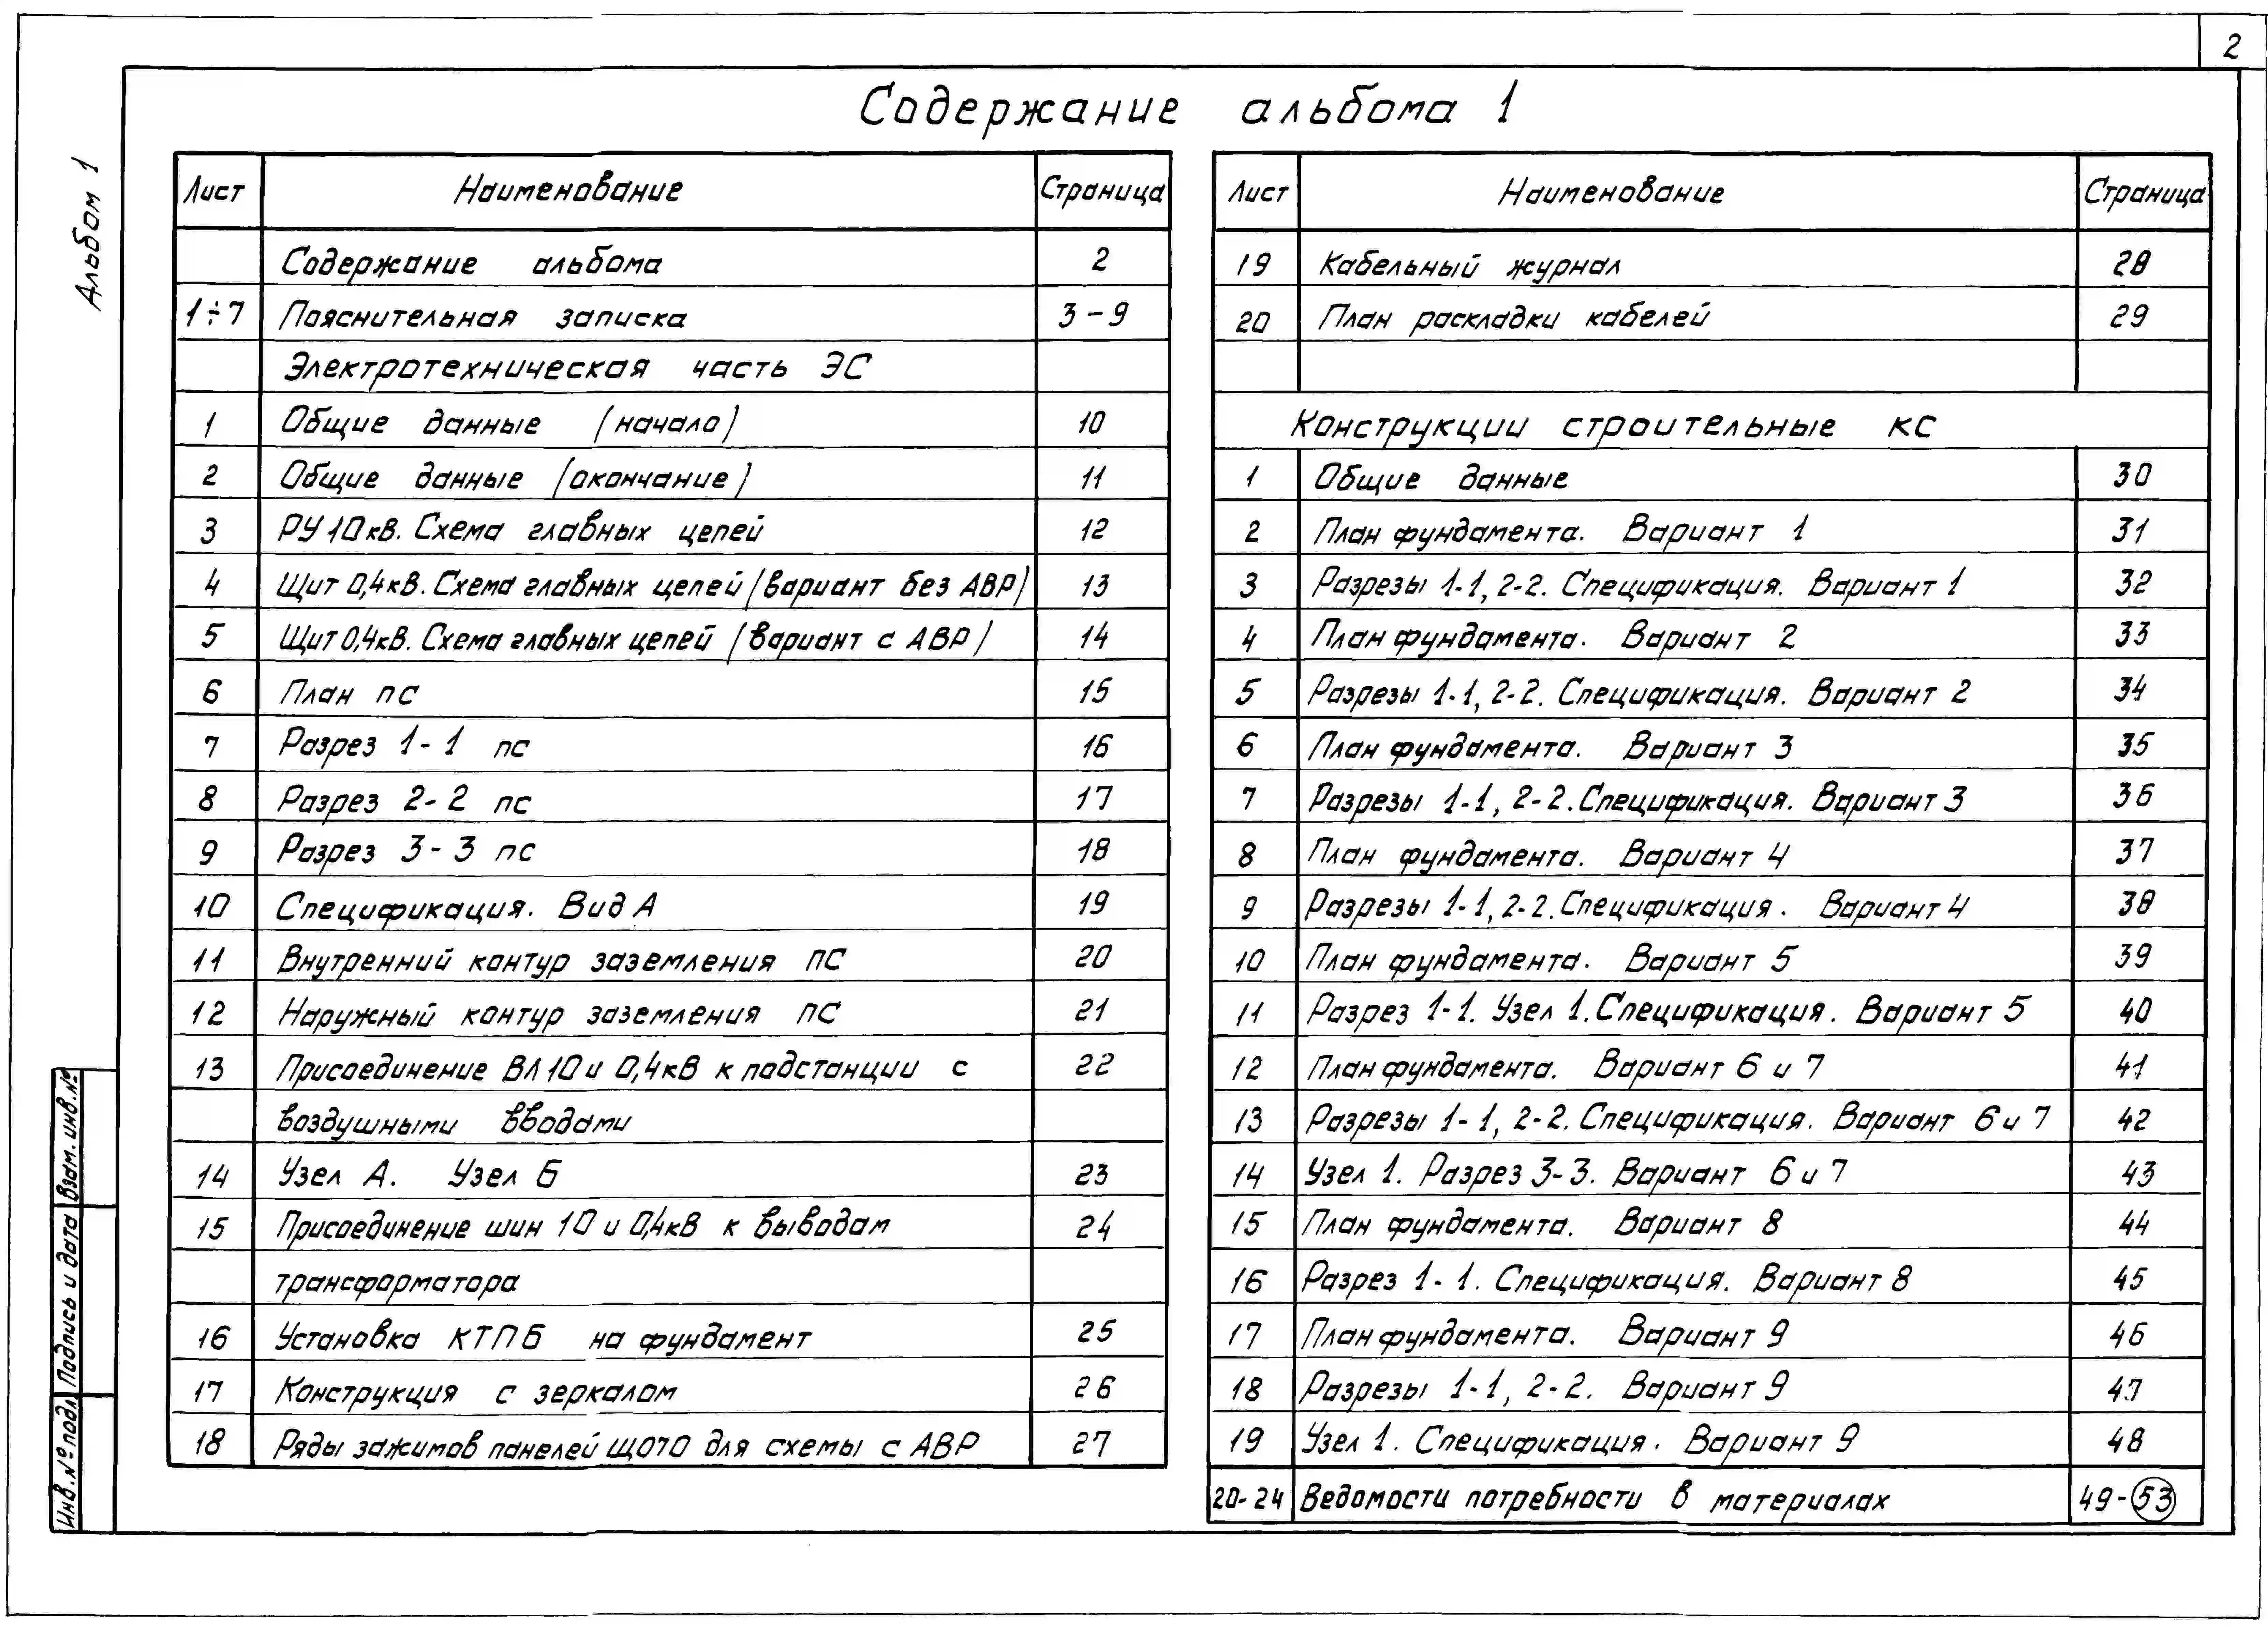 2
Содержание альбома 1
Альбом 1
Лист Наименование Страница
Содержание альбома 2
1÷7 Пояснительная записка 3-9
Электротехническая часть ЭС
1 Общие данные (начало) 10
2 Общие данные (окончание) 11
3 РУ 10кВ. Схема главных цепей 12
4 Щит 0,4кВ. Схема главных цепей (вариант без АВР) 13
5 Щит 0,4кВ. Схема главных цепей (вариант с АВР) 14
6 План пс 15
7 Разрез 1-1 пс 16
8 Разрез 2-2 пс 17
9 Разрез 3-3 пс 18
10 Спецификация. Вид А 19
11 Внутренний контур заземления ПС 20
12 Наружный контур заземления ПС 21
13 Присоединение ВЛ 10 и 0,4кВ к подстанции с 22
воздушными вводами
14 Узел А. Узел Б 23
15 Присоединение шин 10 и 0,4кВ к выводам 24
трансформатора
16 Установка КТПБ на фундамент 25
17 Конструкция с зеркалом 26
18 Ряды зажимов панелей ЩО70 для схемы с АВР 27
Лист Наименование Страница
19 Кабельный журнал 28
20 План раскладки кабелей 29
Конструкции строительные КС
1 Общие данные 30
2 План фундамента. Вариант 1 31
3 Разрезы 1-1, 2-2. Спецификация. Вариант 1 32
4 План фундамента. Вариант 2 33
5 Разрезы 1-1, 2-2. Спецификация. Вариант 2 34
6 План фундамента. Вариант 3 35
7 Разрезы 1-1, 2-2. Спецификация. Вариант 3 36
8 План фундамента. Вариант 4 37
9 Разрезы 1-1, 2-2. Спецификация. Вариант 4 38
10 План фундамента. Вариант 5 39
11 Разрез 1-1. Узел 1. Спецификация. Вариант 5 40
12 План фундамента. Вариант 6 и 7 41
13 Разрезы 1-1, 2-2. Спецификация. Вариант 6 и 7 42
14 Узел 1. Разрез 3-3. Вариант 6 и 7 43
15 План фундамента. Вариант 8 44
16 Разрез 1-1. Спецификация. Вариант 8 45
17 План фундамента. Вариант 9 46
18 Разрезы 1-1, 2-2. Вариант 9 47
19 Узел 1. Спецификация. Вариант 9 48
20-24 Ведомости потребности в материалах 49-53
Взам. инв.№
Подпись и дата
Инв.№ подл